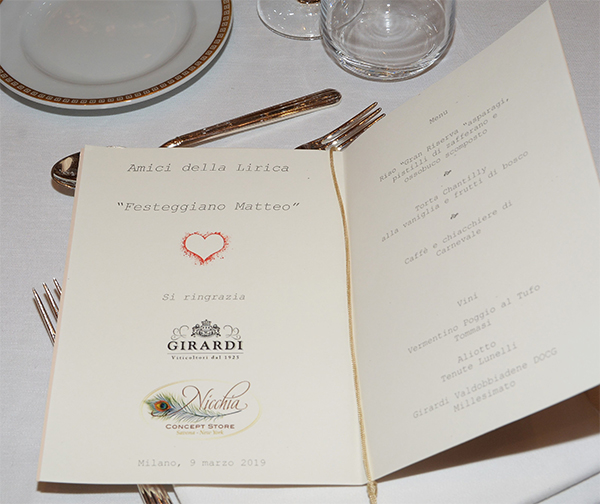 Amici della Lirica
"Festeggiano Matteo"
Si ringrazia
GIRARDI
Viticoltori dal 1925
Nicchia
CONCEPT STORE
Milano, 9 marzo 2019
Menu
Riso "Gran Riserva "asparagi,
pistilli di zafferano e
ossobuco scomposto
Torta Chantilly
alla vaniglia e frutti di bosco
Caffè e chiacchiere di
Carnevale
Vini
Vermentino Poggio al Tufo
Tommasi
Aliotto
Tenute Lunelli
Girardi Valdobbiadene DOCG
Millesimato